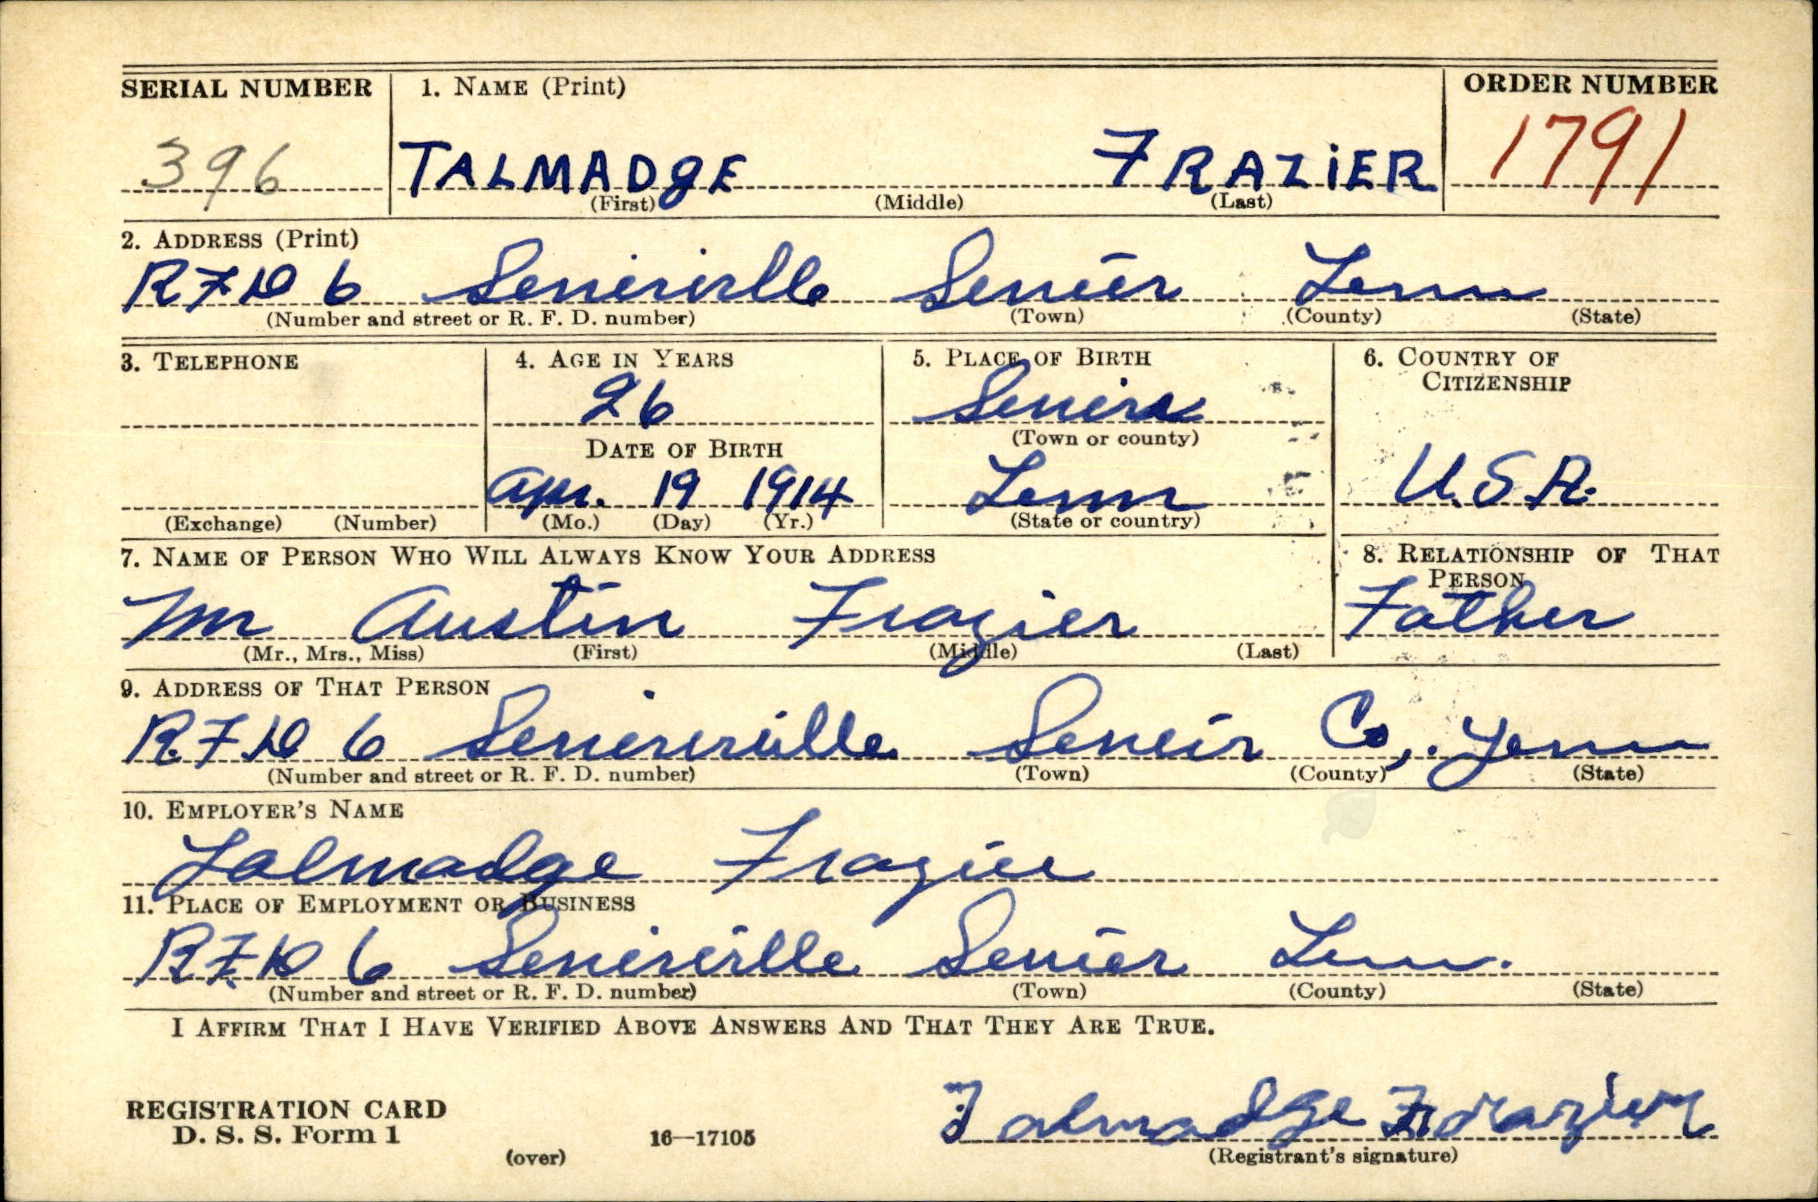 SERIAL NUMBER 1. NAME (Print) ORDER NUMBER
396 TALMADgE FRAZiER 1791
(First) (Middle) (Last)
2. ADDRESS (Print)
RFD 6 Sevierville Sevier Tenn
(Number and street or R. F. D. number) (Town) (County) (State)
3. TELEPHONE 4. AGE IN YEARS 5. PLACE OF BIRTH 6. COUNTRY OF CITIZENSHIP
26 Sevier
DATE OF BIRTH (Town or county)
Apr. 19 1914 Tenn U.S.A.
(Exchange) (Number) (Mo.) (Day) (Yr.) (State or country)
7. NAME OF PERSON WHO WILL ALWAYS KNOW YOUR ADDRESS 8. RELATIONSHIP OF THAT PERSON
Mr Austin Frazier Father
(Mr., Mrs., Miss) (First) (Middle) (Last)
9. ADDRESS OF THAT PERSON
R.F.D 6 Sevierville Sevier Co,. Tenn
(Number and street or R. F. D. number) (Town) (County) (State)
10. EMPLOYER'S NAME
Talmadge Frazier
11. PLACE OF EMPLOYMENT OR BUSINESS
R.F.D 6 Sevierville Sevier Tenn.
(Number and street or R. F. D. number) (Town) (County) (State)
I AFFIRM THAT I HAVE VERIFIED ABOVE ANSWERS AND THAT THEY ARE TRUE.
REGISTRATION CARD
D. S. S. Form 1 16—17105 Talmadge Frazier
(over) (Registrant's signature)